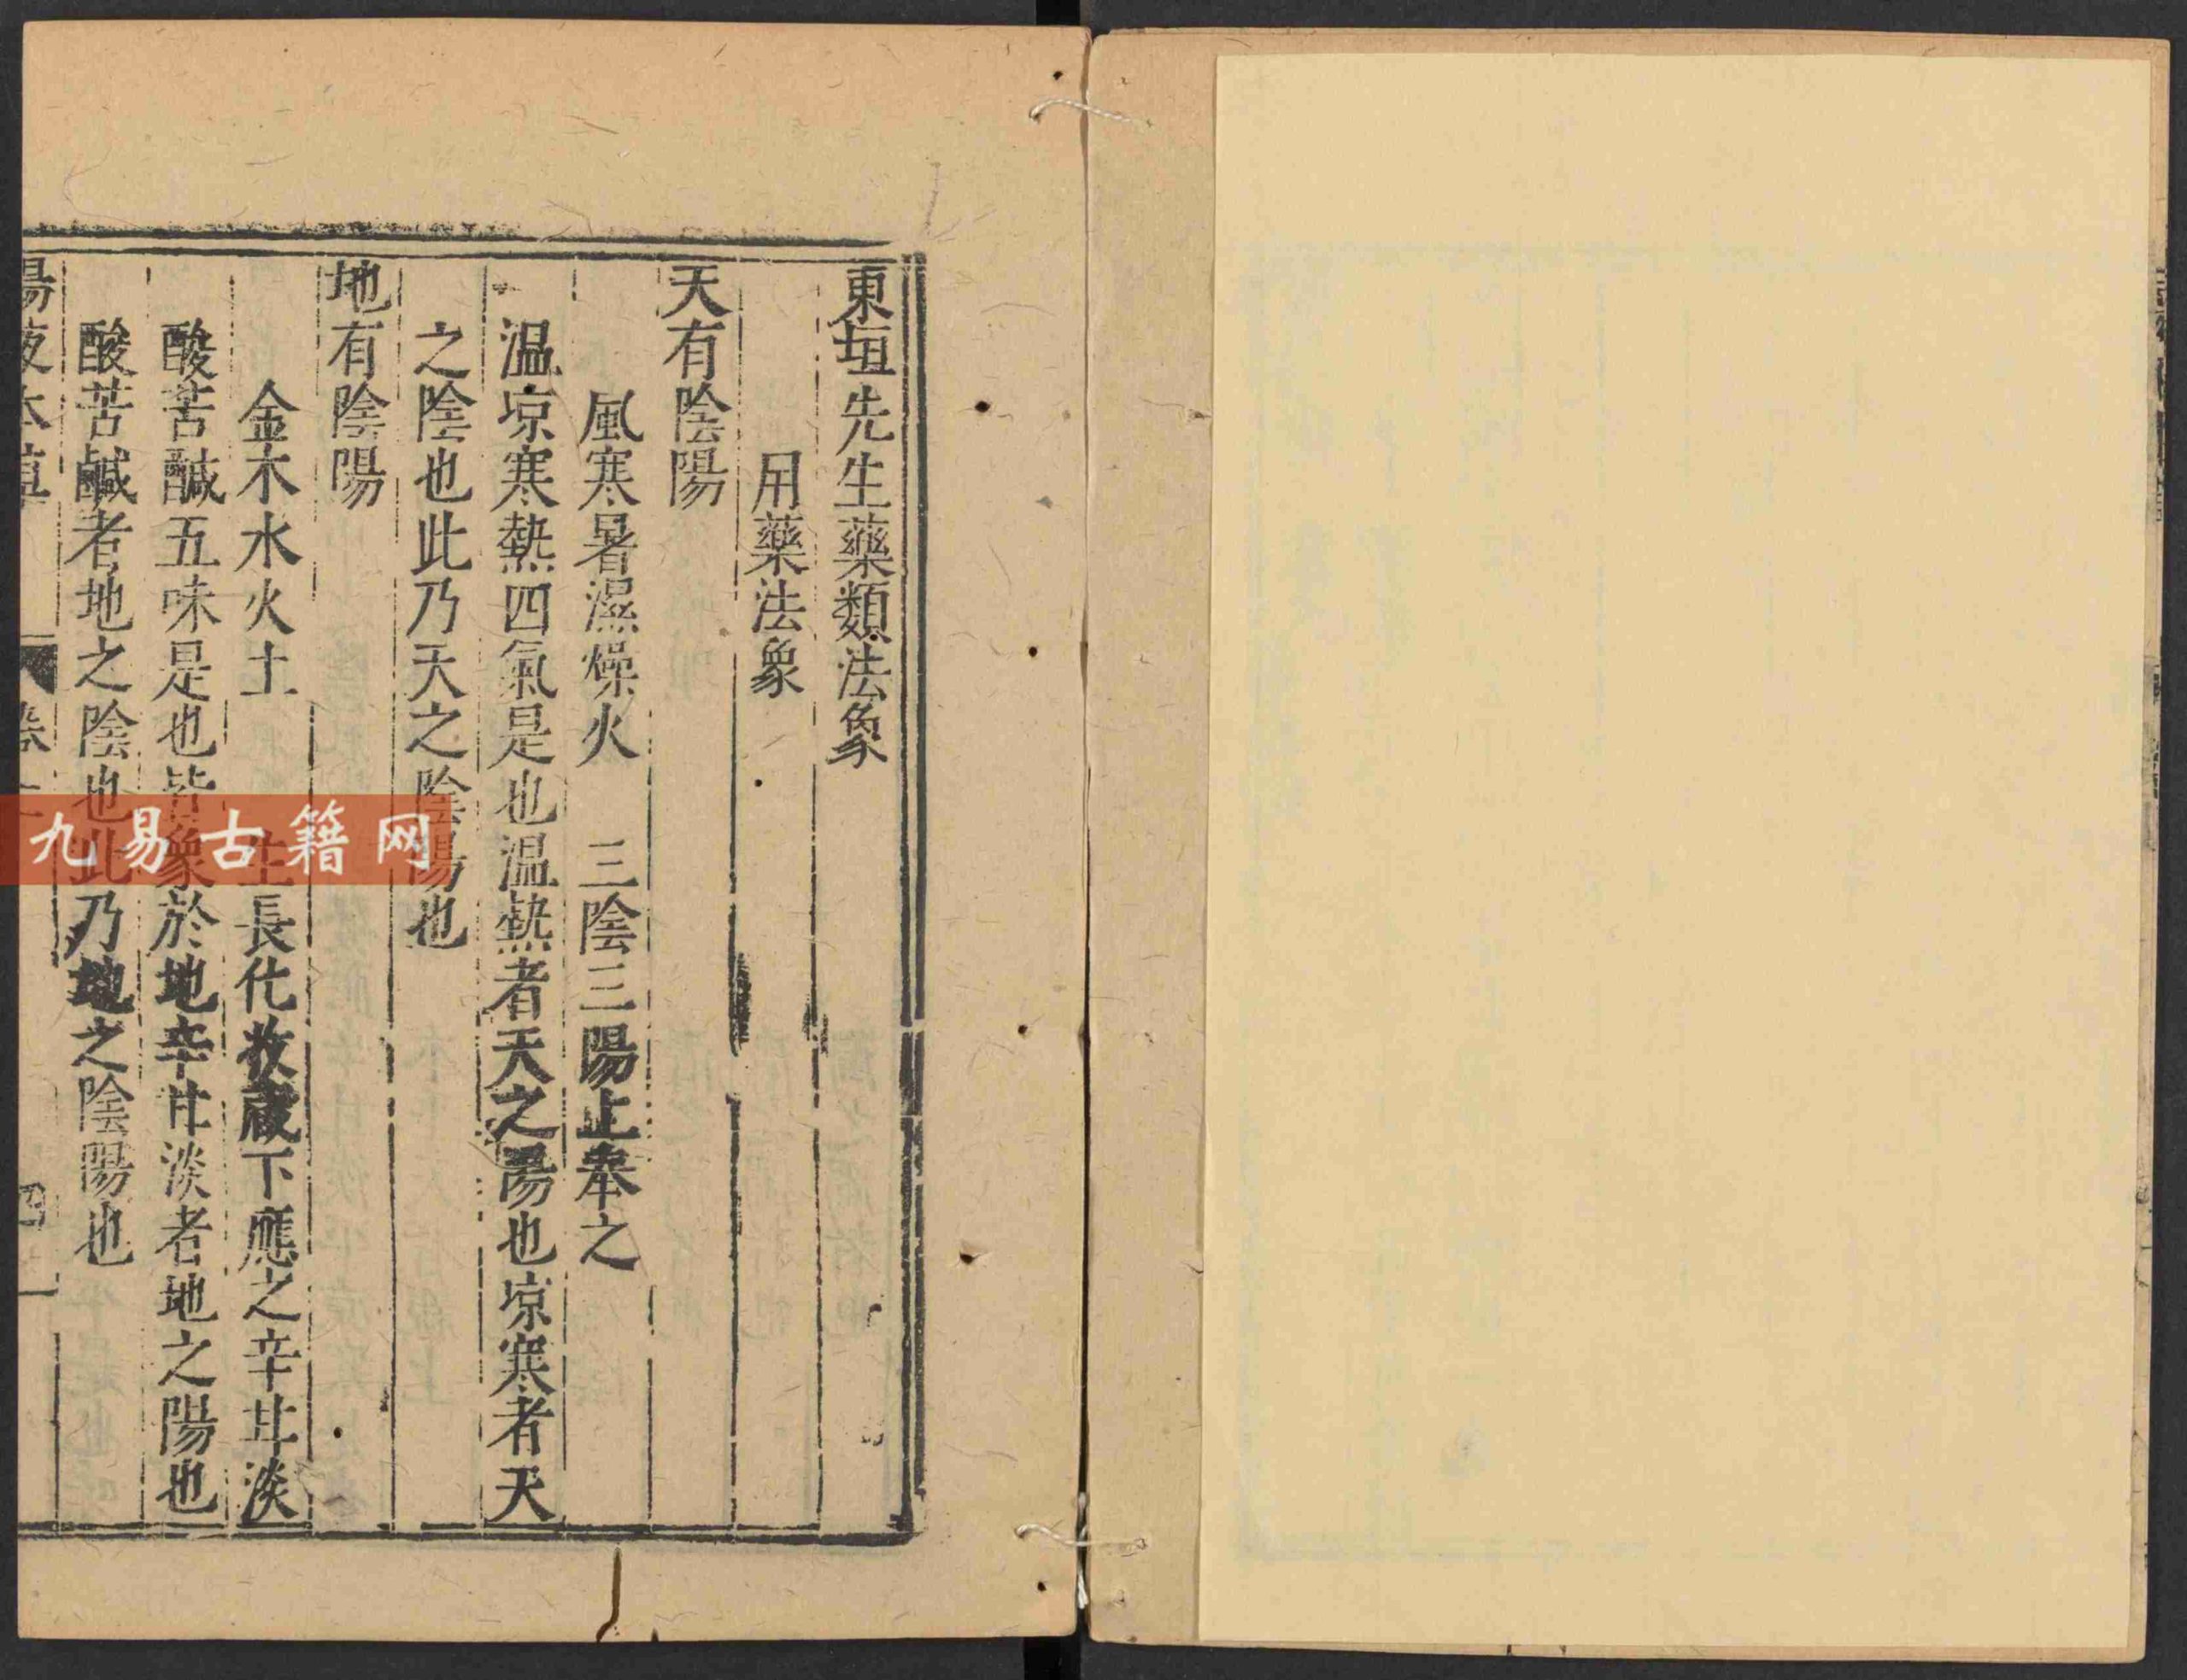 東垣先生藥類法象
用藥法象
天有陰陽
風寒暑濕燥火 三陰三陽上奉之
温凉寒熱四氣是也温熱者天之陽也凉寒者天
之陰也此乃天之陰陽也
地有陰陽
金木水火土 生長化收藏下應之辛甘淡
酸苦鹹五味是也皆象於地辛甘淡者地之陽也
酸苦鹹者地之陰也此乃地之陰陽也
湯液本草 卷上 四一
九易古籍网